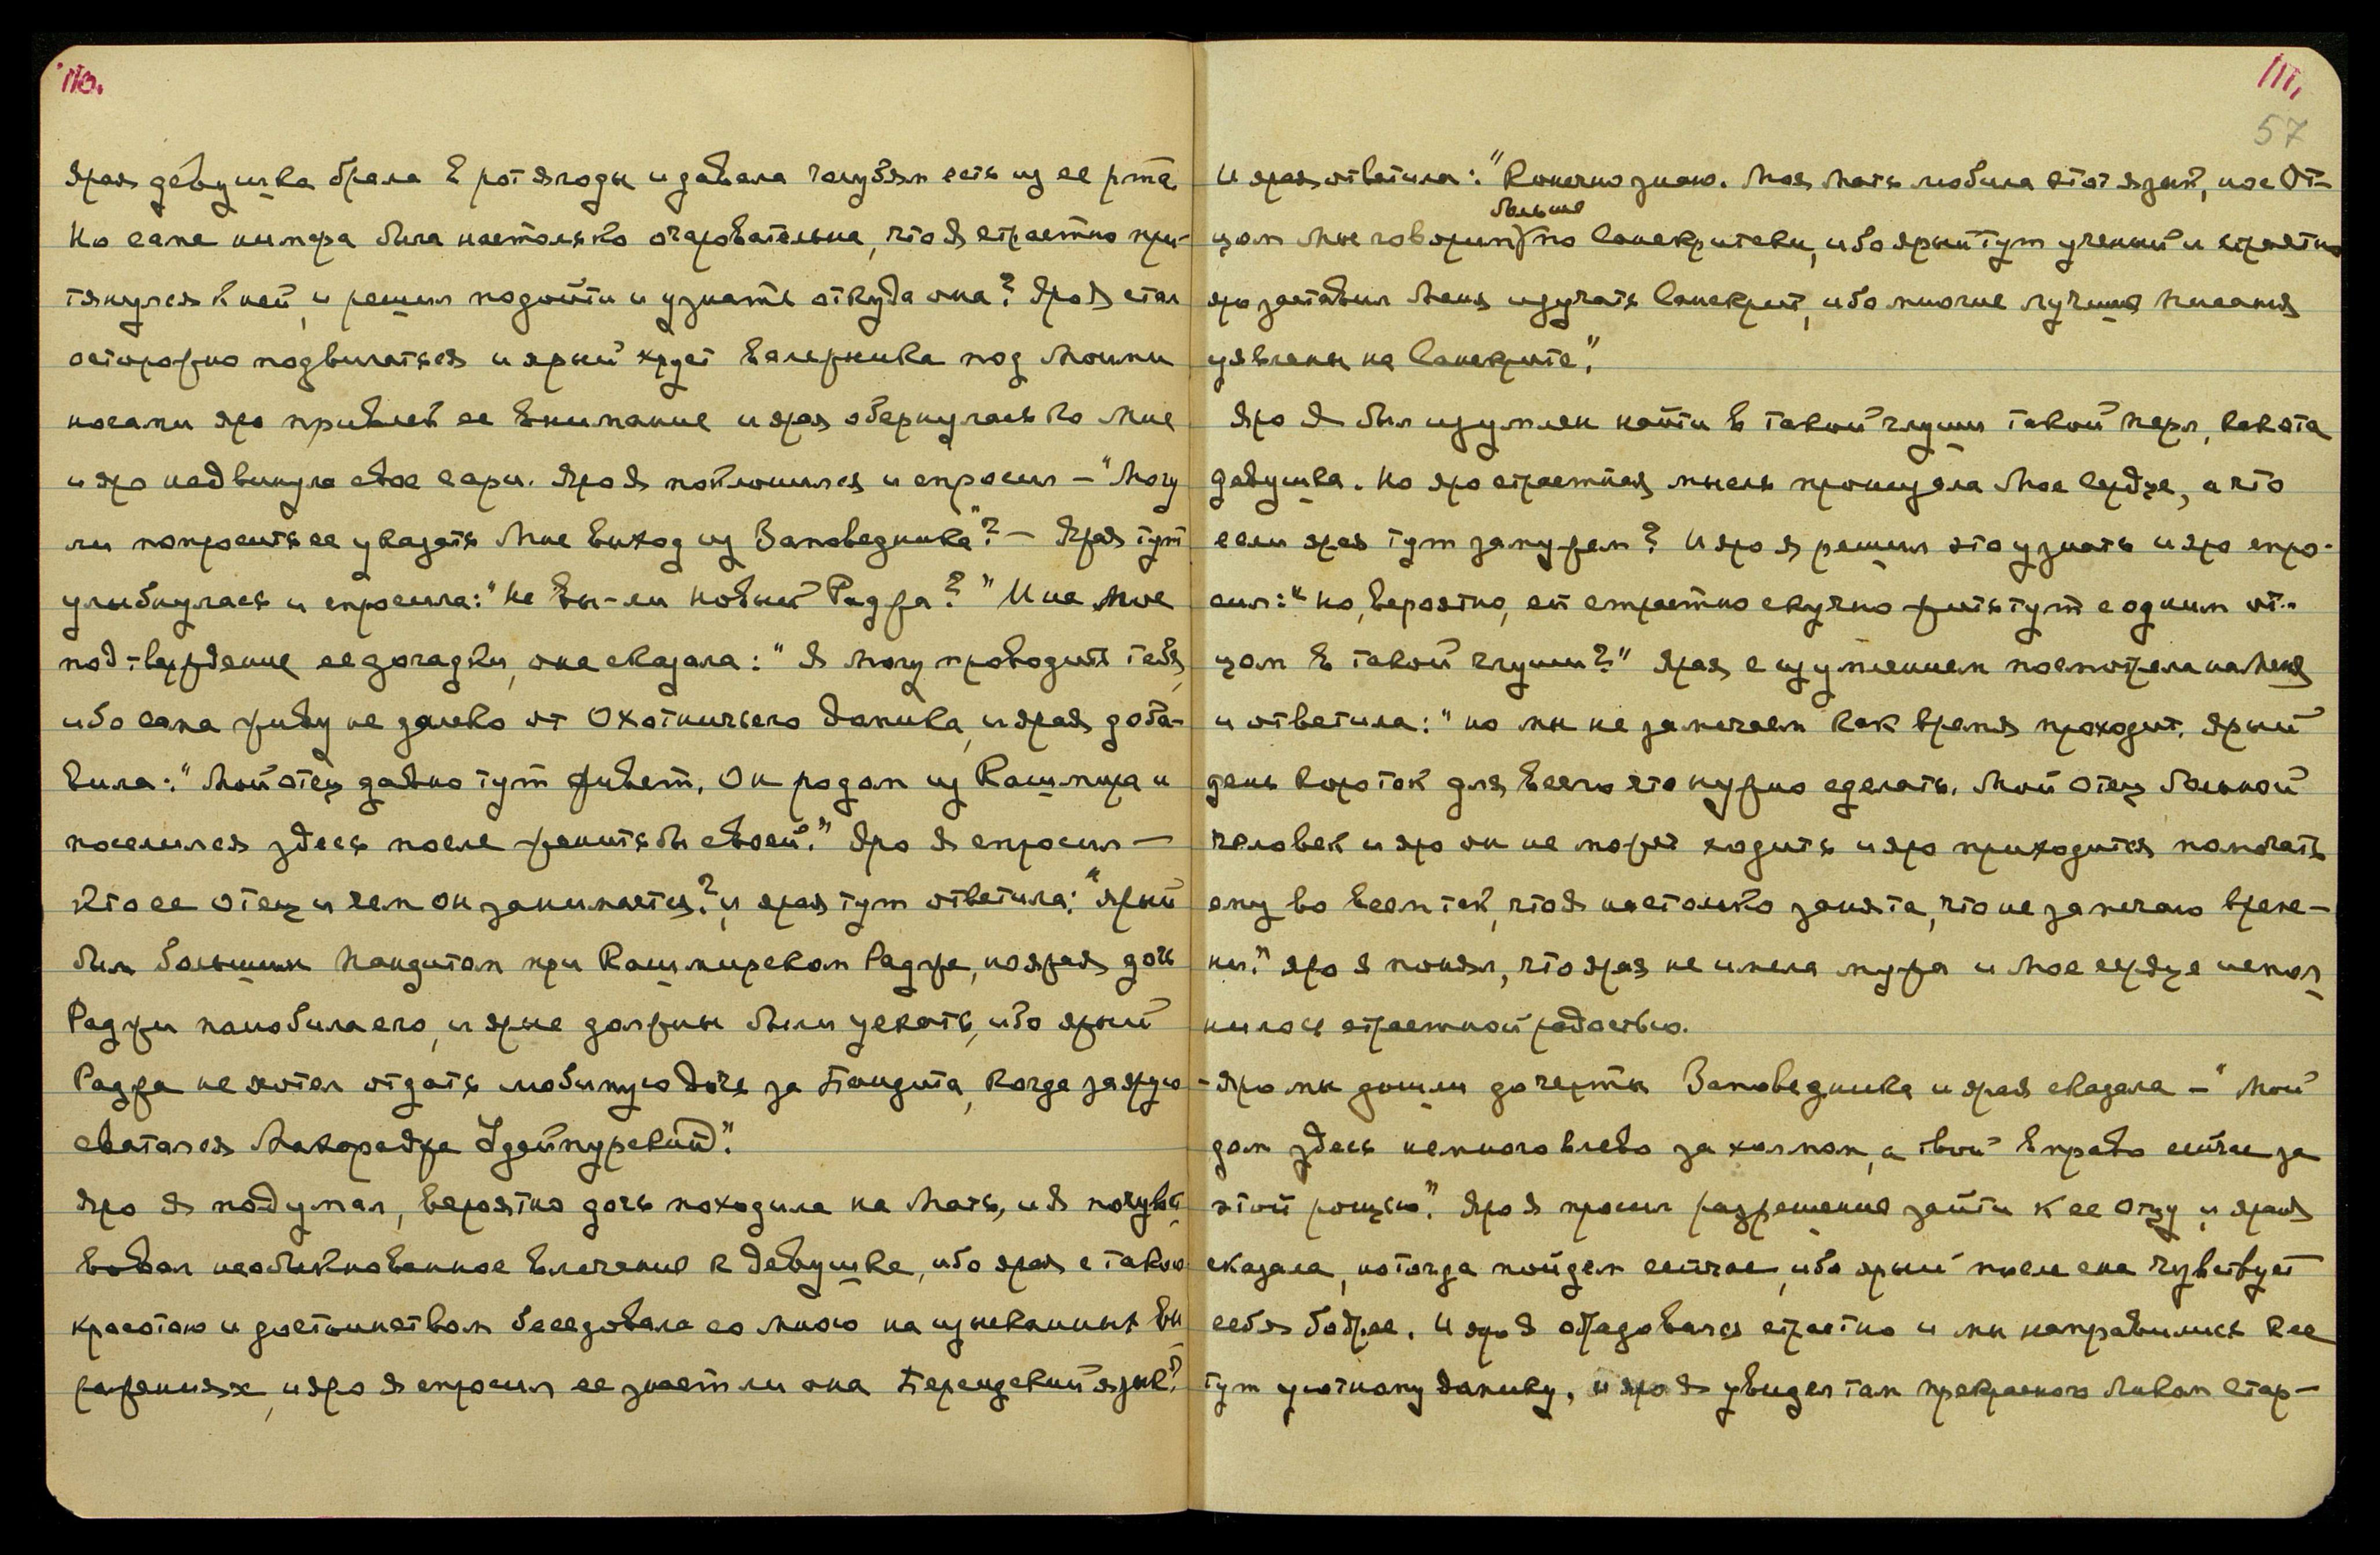 110.
Ярая девушка брала в рот ягоды и давала голубям есть из ее рта.
Но сама нимфа была настолько очаровательна, что Я страстно при-
тянулся к ней, и решил подойти и узнать откуда она? Яро Я стал
осторожно подвигаться и ярый хруст валежника под Моими
ногами яро привлек ее внимание и ярая обернулась ко Мне
и яро надвинула свое сари. Яро Я поклонился и спросил – "Могу
ли попросить ее указать Мне выход из Заповедника"? – Ярая тут
улыбнулась и спросила: "Не Вы-ли новый Раджа?" И на Мое
подтверждение ее догадки, она сказала: "Я могу проводить тебя,
ибо сама живу не далеко от Охотничьего Домика, и ярая доба-
вила: "Мой отец давно тут живет. Он родом из Кашмира и
поселился здесь после женитьбы своей." Яро Я спросил –
кто ее отец и чем он занимается?, и ярая тут ответила: "ярый
был большим Пандитом при Кашмирском Радже, но ярая дочь
Раджи полюбила его, и ярые должны были уехать, ибо ярый
Раджа не хотел отдать любимую дочь за Пандита, когда за ярую
сватался Махараджа Удайпурский".
Яро Я подумал, вероятно дочь походила на Мать, и Я почувст
вовал необыкновенное влечение к девушке, ибо ярая с такою
красотою и достоинством беседовала со Мною на изысканных вы
ражениях, и яро Я спросил ее знает ли она Персидский язык?
111.
57
И ярая ответила: "Конечно знаю. Моя Мать любила этот язык, но с От-
больше
цом Мы говорим по Санскритски, ибо ярый тут ученый и страстно
яро заставил Меня изучать Санскрит, ибо многие лучшие Писания
уявлены на Санскрите."
Яро Я был изумлен найти в такой глуши такой перл, как эта
девушка. Но яро страстная мысль пронзила Мое Сердце, а что
если ярая тут замужем? И яро Я решил это узнать и яро спро-
сил: "Но, вероятно, ей страстно скучно жить тут с одним от-
цом в такой глуши?" Ярая с изумлением посмотрела на Меня
и ответила: "но мы не замечаем как время проходит. Ярый
день короток для всего что нужно сделать. Мой отец больной
человек и яро он не может ходить и яро приходится помогать
ему во всем так, что Я настолько занята, что не замечаю време-
ни." Яро Я понял, что ярая не имела мужа и Мое сердце испол
нилось страстной радостью.
Яро мы дошли до черты Заповедника и ярая сказала – "Мой
дом здесь немного влево за холмом, а твой вправо сейчас за
этой рощею." Яро Я просил разрешение зайти к ее Отцу и ярая
сказала, но тогда пойдем сейчас, ибо ярый после сна чувствует
себя бодрее. И яро Я обрадовался страстно и мы направились к ее
тут уютному Домику, и яро Я увидел там прекрасного ликом стар-